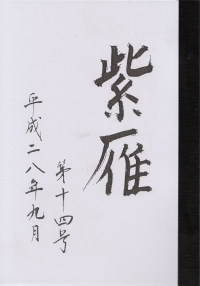 紫雁
第十四号
平成二八年九月